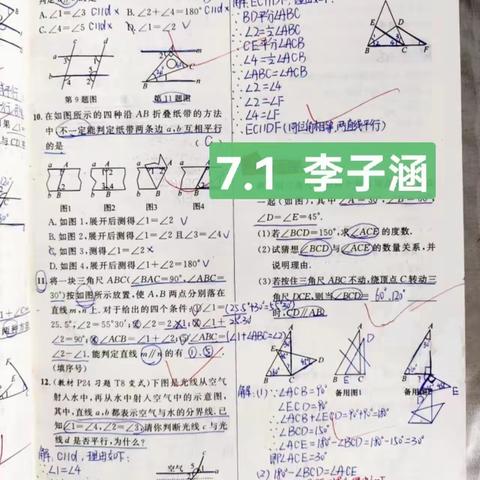 A. ∠1=∠3 C∥d×  B. ∠2+∠4=180° C∥d×
C. ∠4=∠5 C∥d×  D. ∠1=∠2 √
第9题图  第11题图
10. 在如图所示的四种沿AB折叠纸带的方法
中,不一定能判定纸带两条边a,b互相平行
的是 ( C )
图1 图2 图3 图4
A. 如图1,展开后测得∠1=∠2 √
B. 如图2,展开后测得∠1=∠2且∠3=∠4 √
C. 如图3,测得∠1=∠2 ×
D. 如图4,展开后测得∠1+∠2=180° √
11. 将一块三角尺ABC(∠BAC=90°,∠ABC=
30°)按如图所示放置,使A,B两点分别落在
直线m,n上.对于给出的四个条件:①∠1=
25.5°,∠2=55°30′;②∠2=2∠1;③∠1+
∠2=90°;④∠ACB=∠1+∠2;⑤∠ABC=
∠2-∠1.能判定直线m∥n的有 ①、⑤
(填序号)
12. (教材P24习题T8变式)下图是光线从空气
射入水中,再从水中射入空气中的示意图.
其中,直线a,b都表示空气与水的分界线.已
知∠1=∠4,∠2=∠3,请你判断光线c与光
线d是否平行,为什么?
解: C∥d, 理由如下:
∵∠1=∠4
空气
BD平分∠ABC
∴∠2=½∠ABC
CE平分∠ACB
∴∠4=½∠ACB
∵∠ABC=∠ACB
∴∠2=∠4
∵∠2=∠F
∴∠4=∠F
∴EC∥DF(同位角相等,两直线平行)
7.1 李子涵
∠D=∠E=45°.
(1)若∠BCD=150°,求∠ACE的度数.
(2)试猜想∠BCD与∠ACE的数量关系,并
说明理由.
(3)若按住三角尺ABC不动,绕顶点C转动三
角尺DCE,则当∠BCD= 60°,120°
时,CD∥AB.
备用图1 备用图2
解: (1)∵∠ACB=90°
∠ECD=90°
∴∠ACB+∠ECD=90°+90°=180°
∵∠BCD=150°
∴∠ACE=180°-∠BCD=180°-150°=30°
即∠ACE=30°
(2) 180°-∠BCD=∠ACE